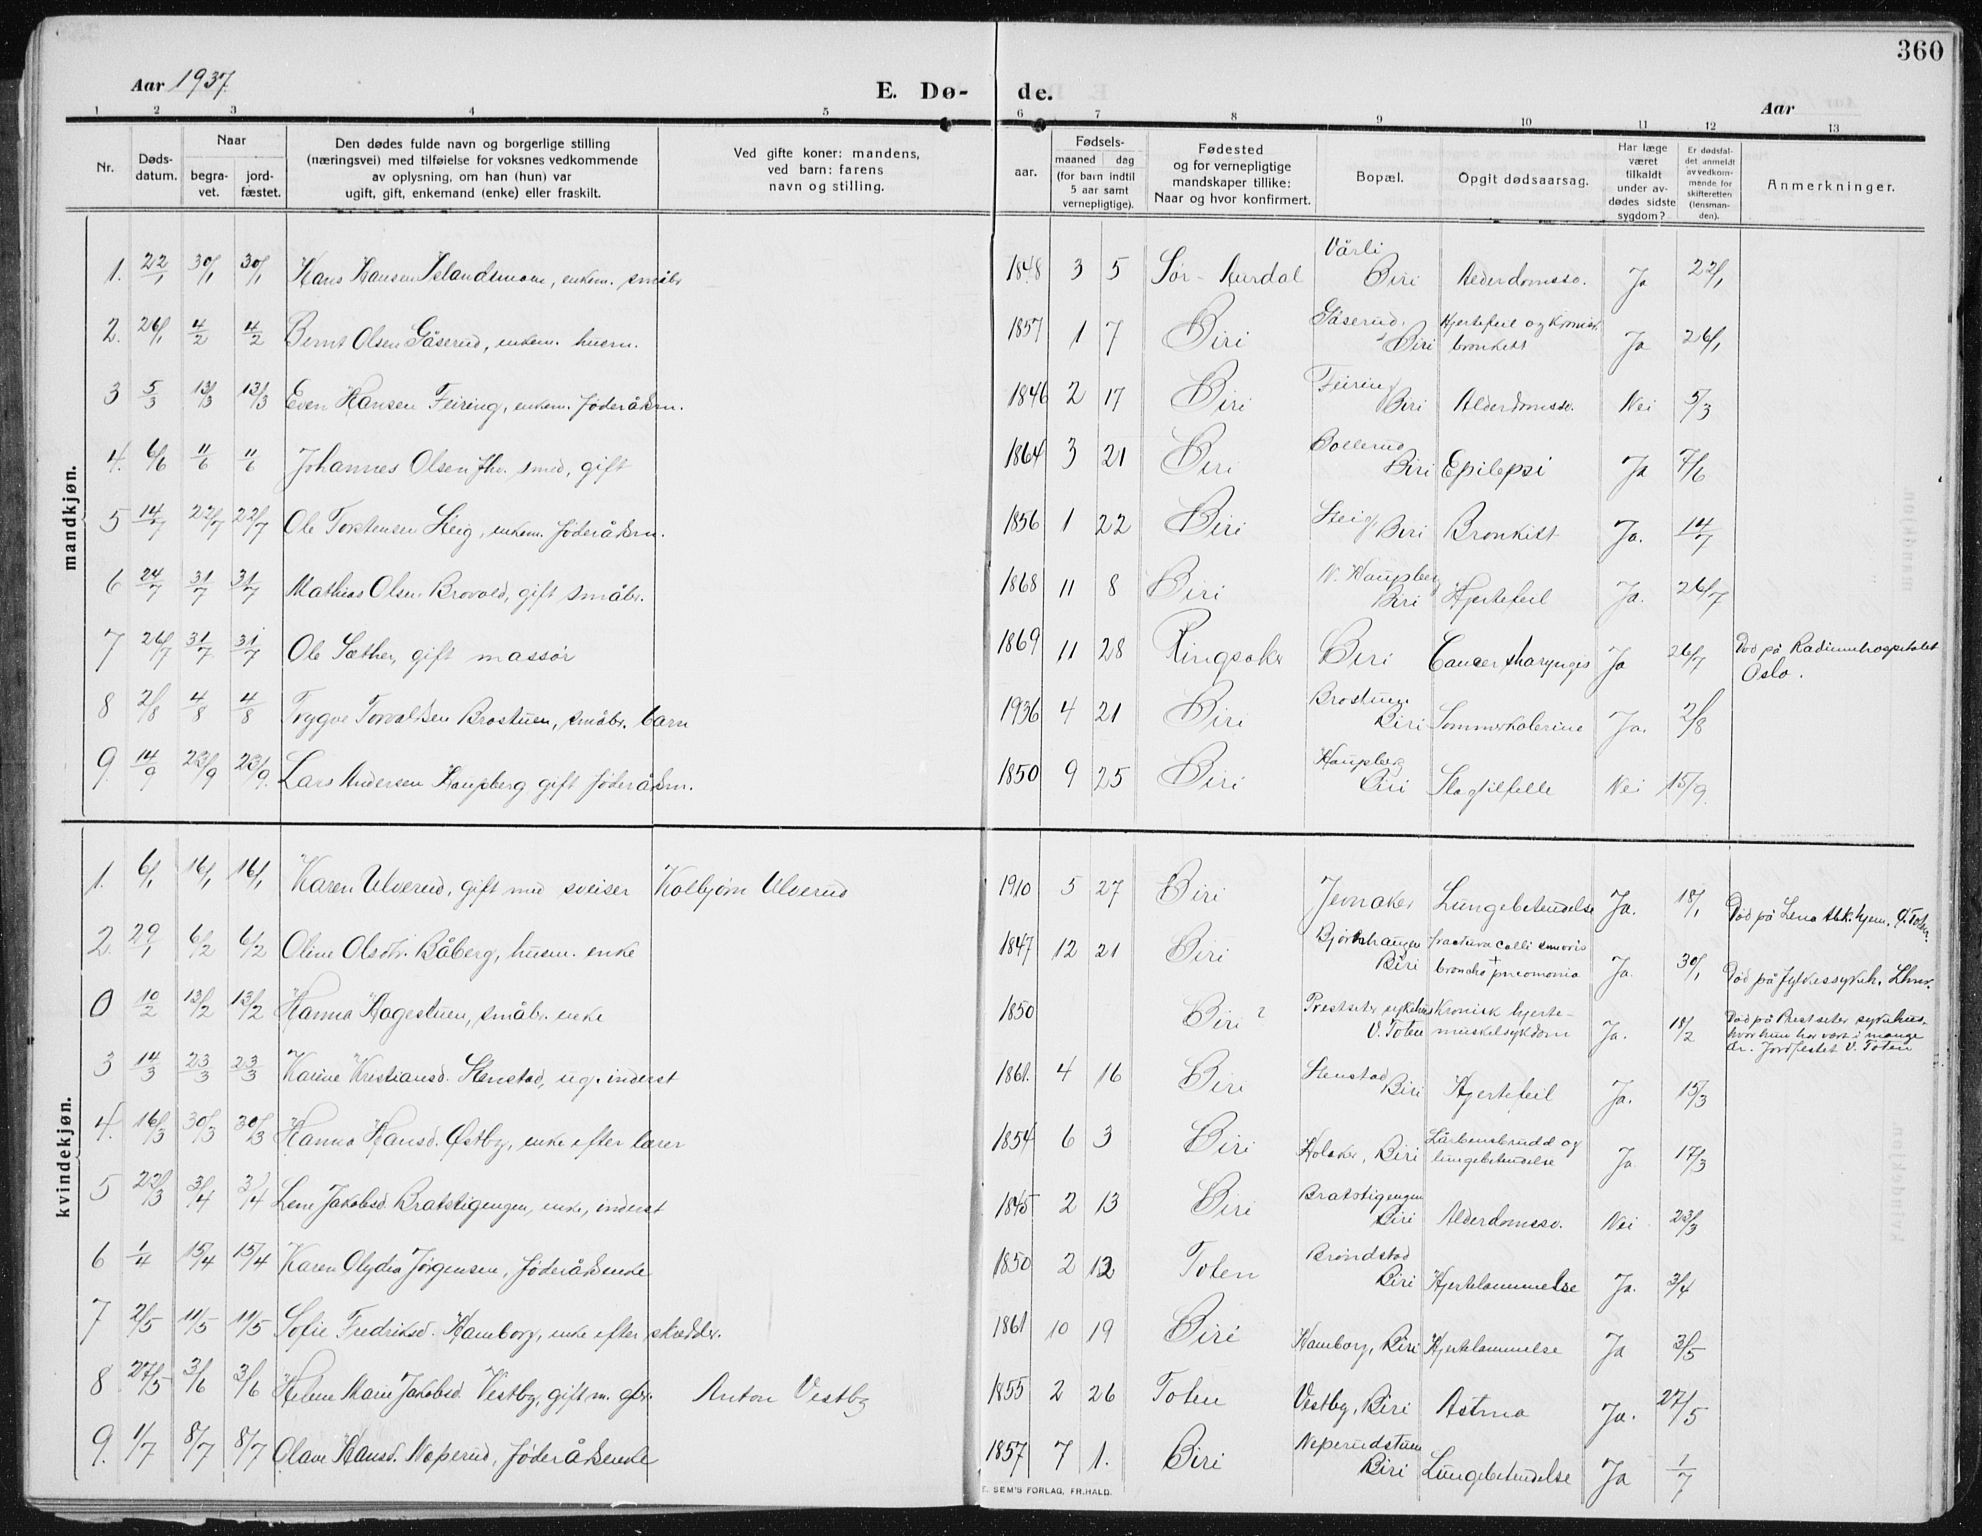 360
Aar 1937.
E. Dø- de.
Aar
1 2 3 4 5 6 7 8 9 10 11 12 13
Nr.
Døds-
datum.
Naar
begra-
vet.
jord-
fæstet.
Den dødes fulde navn og borgerlige stilling
(næringsvei) med tilføielse for voksnes vedkommende
av oplysning, om han (hun) var
ugift, gift, enkemand (enke) eller fraskilt.
Ved gifte koner: mandens,
ved barn: farens
navn og stilling.
Fødsels-
aar.
maaned dag
(for barn indtil
5 aar samt
vernepligtige).
Fødested
og for vernepligtige
mandskaper tillike:
Naar og hvor konfirmert.
Bopæl.
Opgit dødsaarsag.
Har læge
været
tilkaldt
under av-
dødes sidste
sygdom?
Er dødsfal-
det anmeldt
av vedkom-
mende for
skifteretten
(lensman-
den).
Anmerkninger.
mandkjøn.
1. 22/1 30/1 30/1 Hans Hansen Islandsmoen, enkem. småbr 1848 3 5 Sør-Aurdal Vårli Biri Alderdomssv. Ja 22/1
2. 26/1 4/2 4/2 Bernt Olsen Gåserud, enkem. husm. 1857 1 7 Biri Gåserud. Biri Hjertefeil og kronisk bronkitt Ja 26/1
3 5/3 13/3 13/3 Even Hansen Feiring, enkem. føderåksm. 1846 2 17 Biri Feiring Biri Alderdomssv. Nei 5/3
4. 6/6 11/6 11/6 Johannes Olsen fhv. smed, gift 1864 3 21 Biri Bollerud Biri Epilepsi Ja 7/6
5 14/7 22/7 22/7 Ole Torstensen Steig, enkem. føderåksm. 1856 1 22 Biri Steig Biri Bronkitt Ja. 14/7
6 24/7 31/7 31/7 Mathias Olsen Brovold, gift småbr. 1868 11 8 Biri N. Haupberg Biri Hjertefeil Ja. 26/7
7 26/7 31/7 31/7 Ole Sæther, gift massør 1869 11 28 Ringsaker Biri Cancer pharyngis Ja 26/7 Død på Radiumhospitalet Oslo.
8 2/8 4/8 4/8 Trygve Torvaldsen Brostuen, småbr. barn 1936 4 21 Biri Brostuen Biri Sommerkolerine Ja. 2/8
9. 14/9 23/9 23/9. Lars Andersen Haupberg gift føderåksm. 1850 9 25 Biri Haupberg Biri Slagtilfelle Nei 15/9.
kvindekjøn.
1. 6/1 16/1 16/1 Karen Ulverud, gift med sveiser Kolbjørn Ulverud 1910 5 27 Biri Jevnaker Lungebetendelse Ja. 18/1 Død på Lena sykehjem, Ø. Toten.
2. 29/1 6/2 6/2 Oline Olsdtr. Båberg, husm. enke 1847 12 21 Biri Bjørkehaugen Biri fractura colli femoris + broncho pneomonia Ja. 30/1 Død på fylkessykeh. Lhmr.
0 10/2 13/2 13/2 Hanna Hagestuen, småbr. enke 1850 Biri? Prestseter sykehus V. Toten Kronisk hjerte-muskelsykdom Ja. 18/2 Død på Prestseter sykehus, hvor hun har vært i mange år. Jordfestet V. Toten
3 14/3 23/3 23/3 Karine Kristiansd. Stenstad, ug. inderst 1861. 4 16 Biri Stenstad Biri Hjertefeil Ja. 15/3
4. 16/3 30/3 30/3 Hanna Hansd. Østby, enke efter lærer 1854 6 3 Biri Holaker, Biri Lårbensbrudd og lungebetendelse Ja 17/3
5 22/3 3/4 3/4 Lene Jakobsd. Bratstigengen, enke, inderst 1845 2 13 Biri Bratstigengen Biri Alderdomssv. Nei 23/3
6 1/4 15/4 15/4 Karen Olydia Jørgensen, føderåksenke 1850 2 12 Toten Brøndstad Biri Hjertelammelse Ja. 3/4
7 2/5 11/5 11/5 Sofie Fredriksd. Hamborg, enke efter skrædder. 1861 10 19 Biri Hamborg, Biri Hjertelammelse Ja 3/5
8 27/5 3/6 3/6 Helene Marie Jakobsd. Vestby, gift m. gbr. Anton Vestby 1855 2 26 Toten Vestby, Biri Astma Ja. 27/5
9. 1/7 8/7 8/7 Olave Hansd. Neperud, føderåksenke 1857 7 1. Biri Neperudstuen Biri Lungebetendelse Ja 1/7
E. SEM'S FORLAG, FR.HALD.